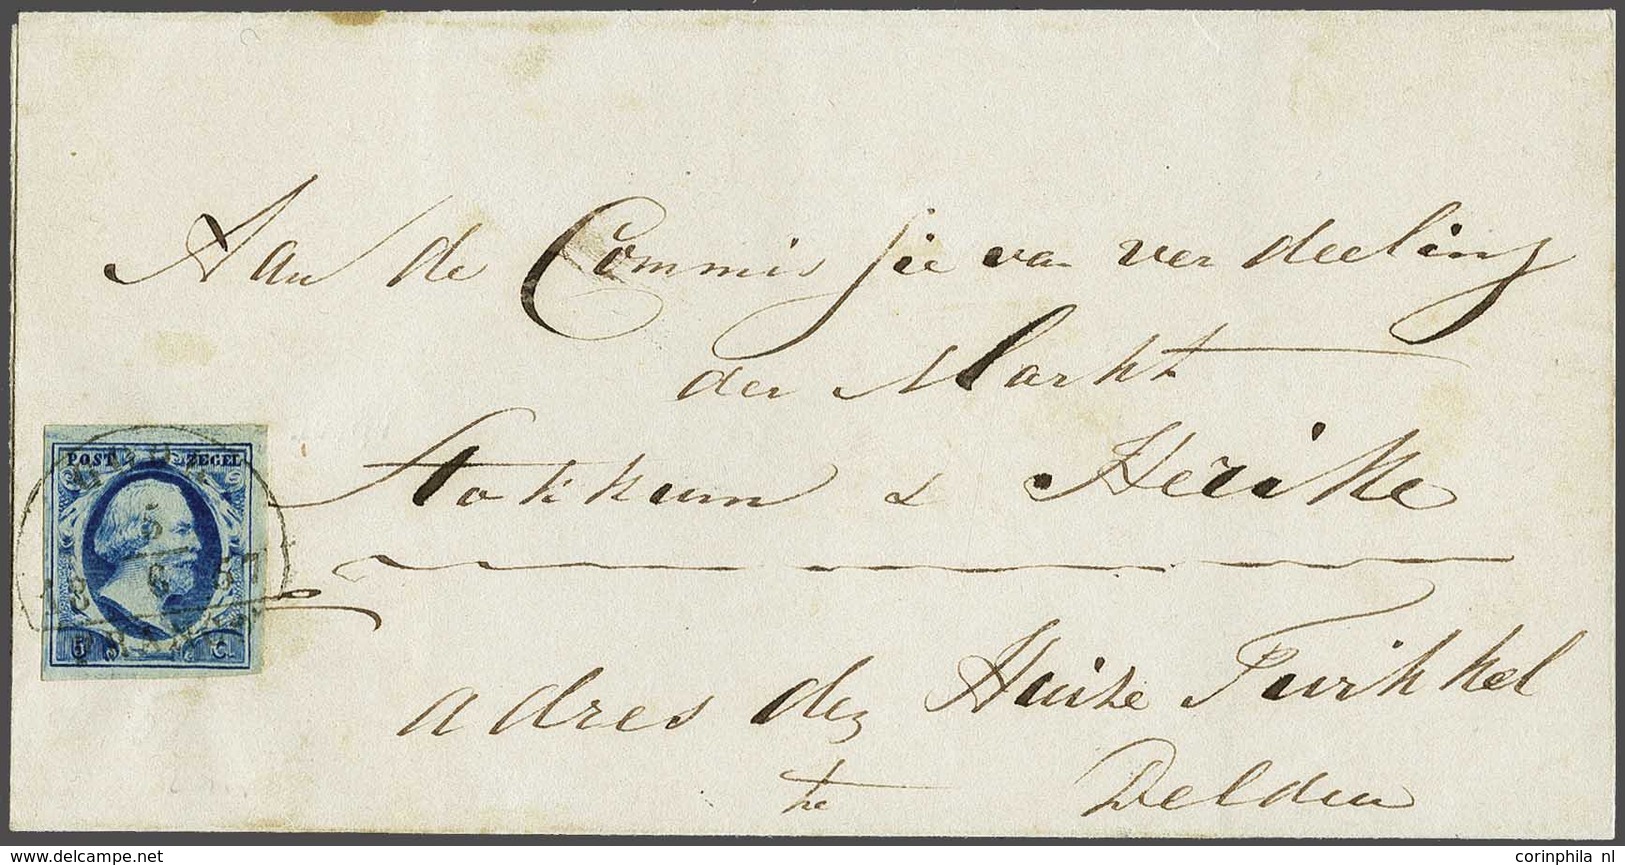 Aan de Commissie van verdeeling
der Markt
Stokkum & Herike
adres den Huize Twikkel
te Delden
POST ZEGEL
5
18 6 57
FRANCO
5 Ct.
delcampe.net
corinphila nl